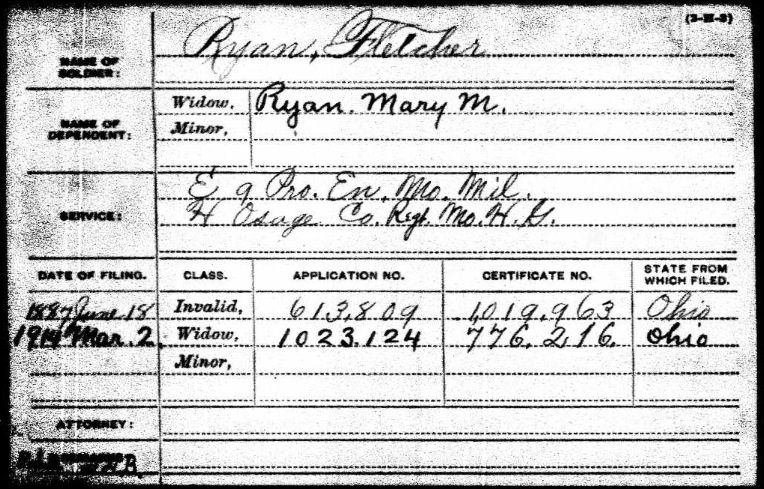 (3-M-3)
NAME OF SOLDIER: Ryan, Fletcher
NAME OF DEPENDENT: Widow, Ryan. Mary M.
Minor,
SERVICE: E 9 Pro. En. Mo. Mil.
H Osage Co. Regt. Mo. H. G.
DATE OF FILING. CLASS. APPLICATION NO. CERTIFICATE NO. STATE FROM WHICH FILED.
1887 June 18 Invalid, 613,809 1,019,963 Ohio
1914 Mar. 2. Widow, 1023.124 776.216. Ohio
Minor,
ATTORNEY: